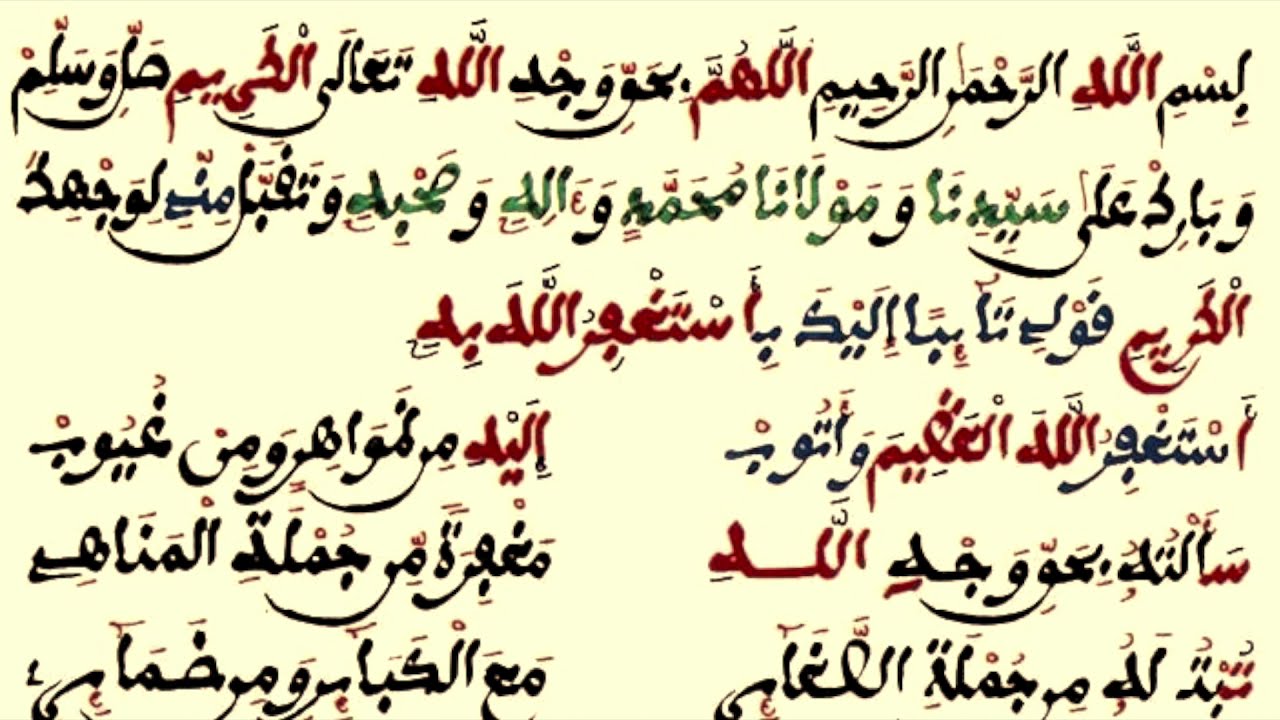 بِسْمِ اللَّهِ الرَّحْمَٰنِ الرَّحِيمِ اللَّهُمَّ بِحَقِّ وَجْهِ اللَّهِ تَعَالَى الْكَرِيمِ صَلِّ وَسَلِّمْ
وَبَارِكْ عَلَى سَيِّدِنَا وَمَوْلَانَا مُحَمَّدٍ وَءَالِهِ وَصَحْبِهِ وَتَقَبَّلْ مِنِّي لِوَجْهِكَ
الْكَرِيمِ قَوْلِي تَآئِبًا إِلَيْكَ بِأَسْتَغْفِرُ اللَّهَ بِهِ
أَسْتَغْفِرُ اللَّهَ الْعَظِيمَ وَأَتُوبْ إِلَيْهِ مِن ظَوَاهِرٍ وَمِنْ غُيُوبْ
سَأَلْتُهُ بِحَقِّ وَجْهِ اللَّهِ مَغْفِرَةً مِّن جُمْلَةِ الْمَنَاهِي
تُبْتُ لَهُ مِن جُمْلَةِ الصَّغَآئِرِ مَعَ الْكَبَآئِرِ وَمِن ضَمَآئِرِي